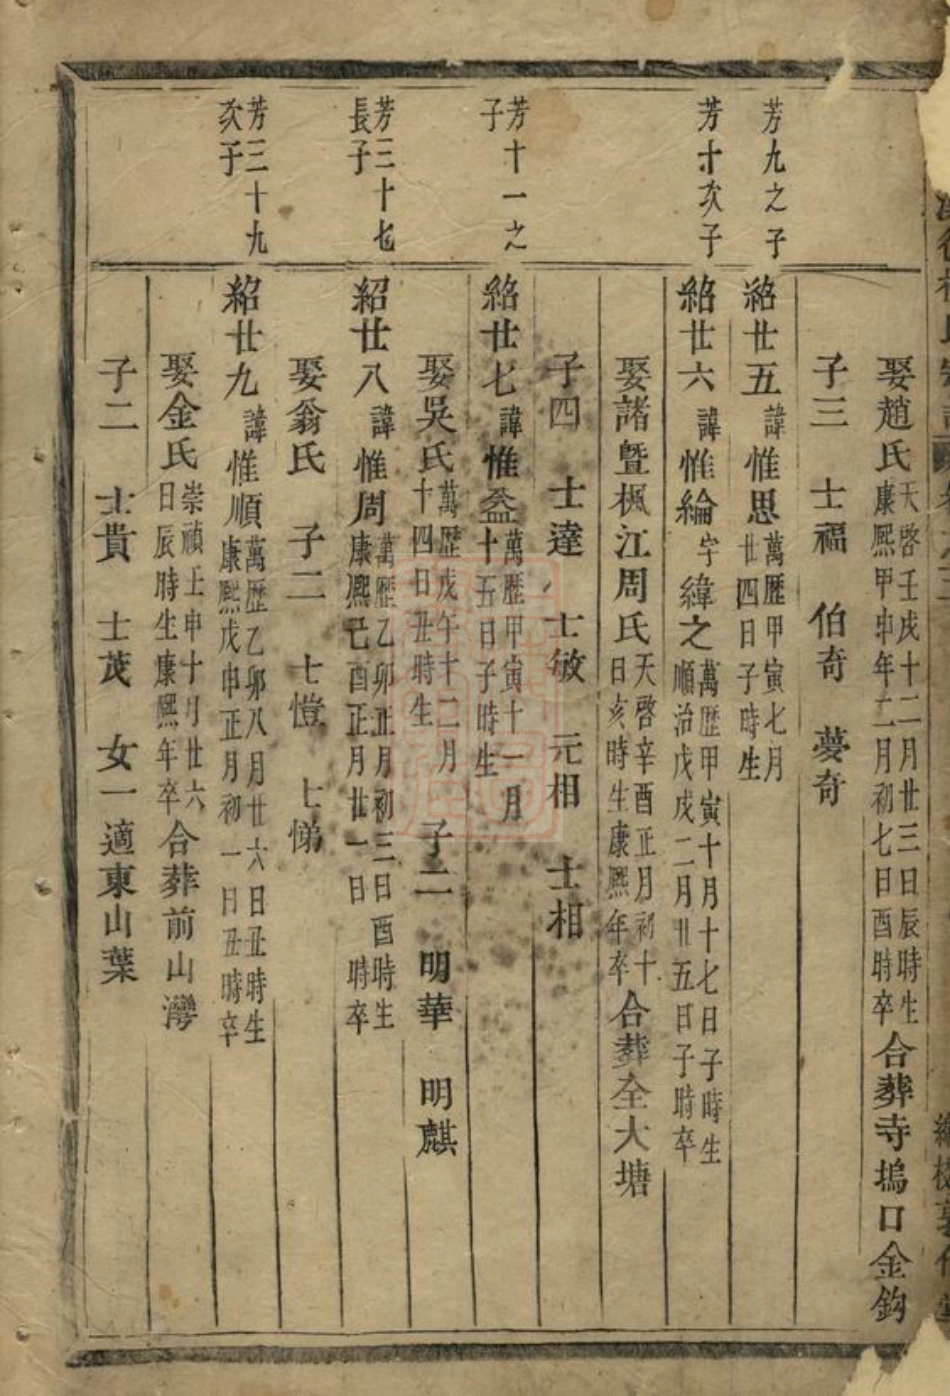 娶趙氏天啓壬戌十二月廿三日辰時生康熙甲申年二月初七日酉時卒合葬寺塢口金鈎
子三 士福 伯奇 夢奇
芳九之子
紹廿五諱惟思萬歷甲寅七月廿四日子時生
芳十次子
紹廿六諱惟綸字緯之萬歷甲寅十月十七日子時生順治戊戌二月廿五日子時卒
娶諸曁楓江周氏天啓辛酉正月初十日亥時生康熙年卒合葬全大塘
子四 士達 士敏 元相 士相
芳十一之子
紹廿七諱惟益萬歷甲寅十一月十五日子時生
娶吳氏萬歷戊午十二月十四日丑時生 子二 明華 明麒
芳三十七長子
紹廿八諱惟周萬歷乙卯正月初三日酉時生康熙己酉正月廿一日時卒
娶翁氏 子二 士愷 士悌
芳三十九次子
紹廿九諱惟順萬歷乙卯八月廿六日丑時生康熙戊申正月初一日丑時卒
娶金氏崇禎壬申十月廿六日辰時生康熙年卒合葬前山灣
子二 士貴 士茂 女一適東山葉